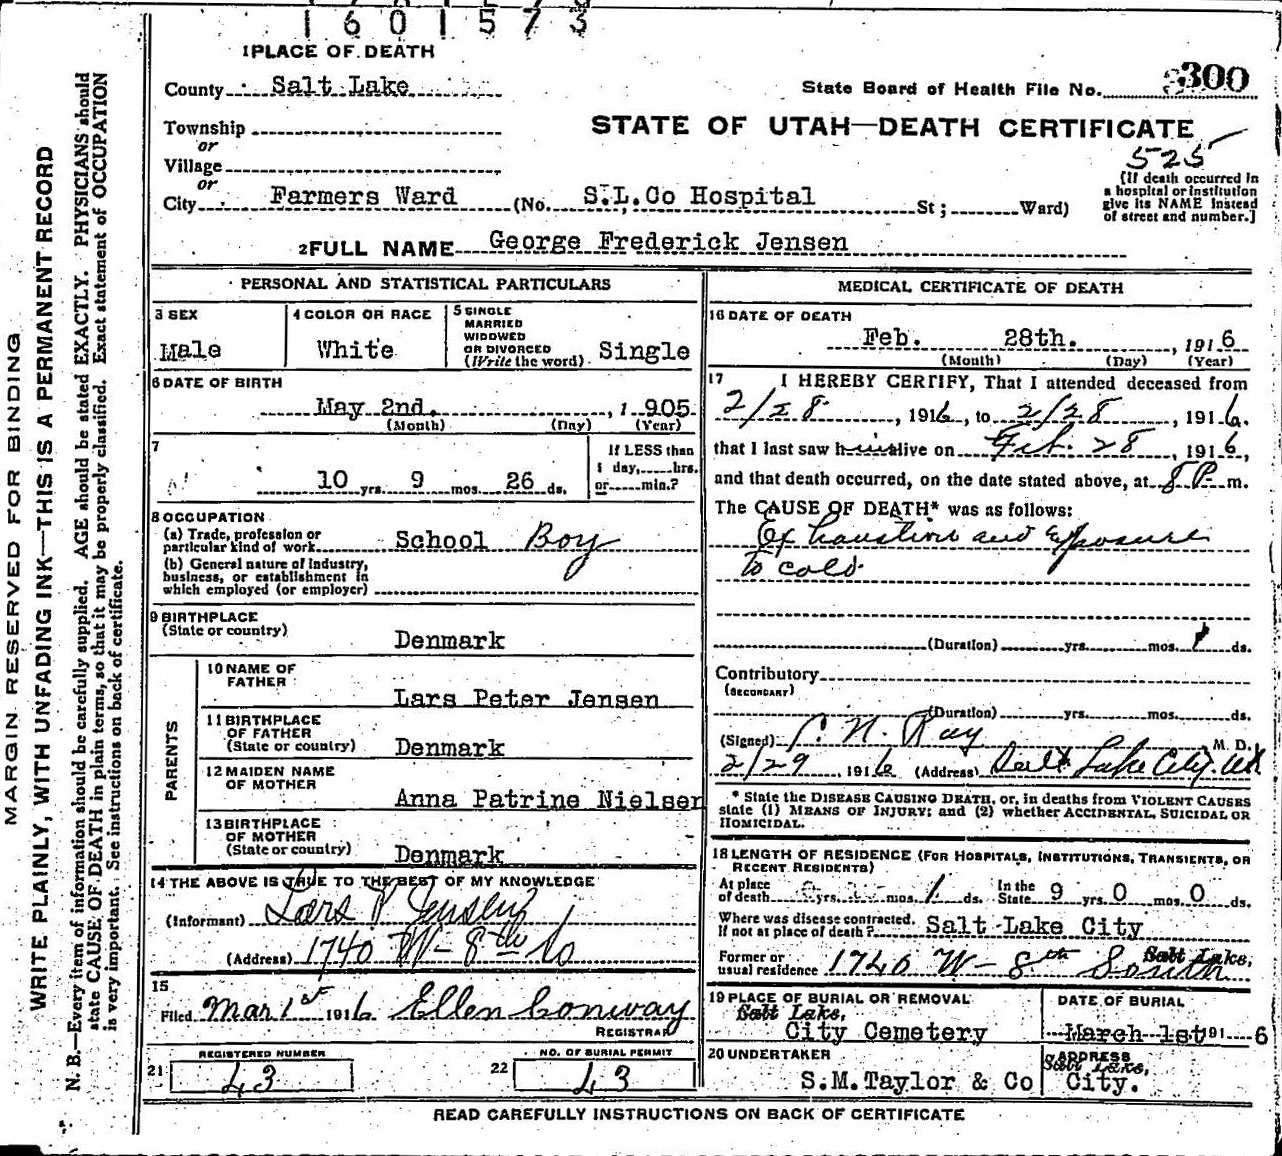 1601573
1 PLACE OF DEATH
County Salt Lake
State Board of Health File No. 300
Township
or
Village
or
City Farmers Ward (No. S.L.Co Hospital St; Ward)
STATE OF UTAH—DEATH CERTIFICATE
525
[If death occurred in
a hospital or institution
give its NAME instead
of street and number.]
2 FULL NAME George Frederick Jensen
PERSONAL AND STATISTICAL PARTICULARS
3 SEX
Male
4 COLOR OR RACE
White
5 SINGLE
MARRIED
WIDOWED
OR DIVORCED
(Write the word) Single
6 DATE OF BIRTH
May 2nd. , 1 905
(Month) (Day) (Year)
7
10 yrs. 9 mos. 26 ds.
If LESS than
1 day, hrs.
or min.?
8 OCCUPATION
(a) Trade, profession or
particular kind of work School Boy
(b) General nature of industry,
business, or establishment in
which employed (or employer)
9 BIRTHPLACE
(State or country)
Denmark
PARENTS
10 NAME OF
FATHER
Lars Peter Jensen
11 BIRTHPLACE
OF FATHER
(State or country) Denmark
12 MAIDEN NAME
OF MOTHER
Anna Patrine Nielsen
13 BIRTHPLACE
OF MOTHER
(State or country) Denmark
14 THE ABOVE IS TRUE TO THE BEST OF MY KNOWLEDGE
(Informant) Lars P Jensen
(Address) 1740 W- 8th So
15
Filed Mar 1st 1916 Ellen Conway
REGISTRAR
REGISTERED NUMBER
21 43
NO. OF BURIAL PERMIT
22 43
MEDICAL CERTIFICATE OF DEATH
16 DATE OF DEATH
Feb. 28th. , 191 6
(Month) (Day) (Year)
17 I HEREBY CERTIFY, That I attended deceased from
2/28 , 1916, to 2/28 , 1916.
that I last saw him alive on Feb. 28 , 1916,
and that death occurred, on the date stated above, at 8 P. m.
The CAUSE OF DEATH* was as follows:
Exhaustion and Exposure
to cold.
(Duration) yrs. mos. 1 ds.
Contributory
(SECONDARY)
(Duration) yrs. mos. ds.
(Signed) N. Ray M. D.
2/29 , 1916 (Address) Salt Lake City. Ut
* State the DISEASE CAUSING DEATH, or, in deaths from VIOLENT CAUSES
state (1) MEANS OF INJURY; and (2) whether ACCIDENTAL, SUICIDAL OR
HOMICIDAL.
18 LENGTH OF RESIDENCE (FOR HOSPITALS, INSTITUTIONS, TRANSIENTS, OR
RECENT RESIDENTS)
At place
of death yrs. mos. 1 ds. In the
State 9 yrs. 0 mos. 0 ds.
Where was disease contracted,
If not at place of death? Salt Lake City
Former or
usual residence 1740 W- 8th South Salt Lake,
19 PLACE OF BURIAL OR REMOVAL
Salt Lake,
City Cemetery
DATE OF BURIAL
March 1st 191 6
20 UNDERTAKER
S.M.Taylor & Co
ADDRESS
Salt Lake,
City.
READ CAREFULLY INSTRUCTIONS ON BACK OF CERTIFICATE
MARGIN RESERVED FOR BINDING
WRITE PLAINLY, WITH UNFADING INK—THIS IS A PERMANENT RECORD
N. B.—Every item of information should be carefully supplied. AGE should be stated EXACTLY. PHYSICIANS should
state CAUSE OF DEATH in plain terms, so that it may be properly classified. Exact statement of OCCUPATION
is very important. See instructions on back of certificate.